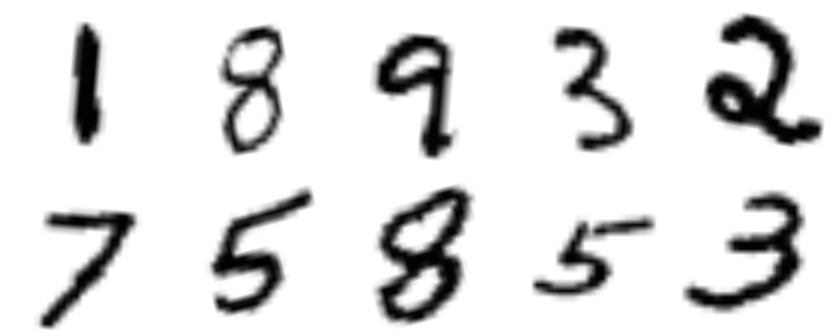 1 8 9 3 2
7 5 8 5 3